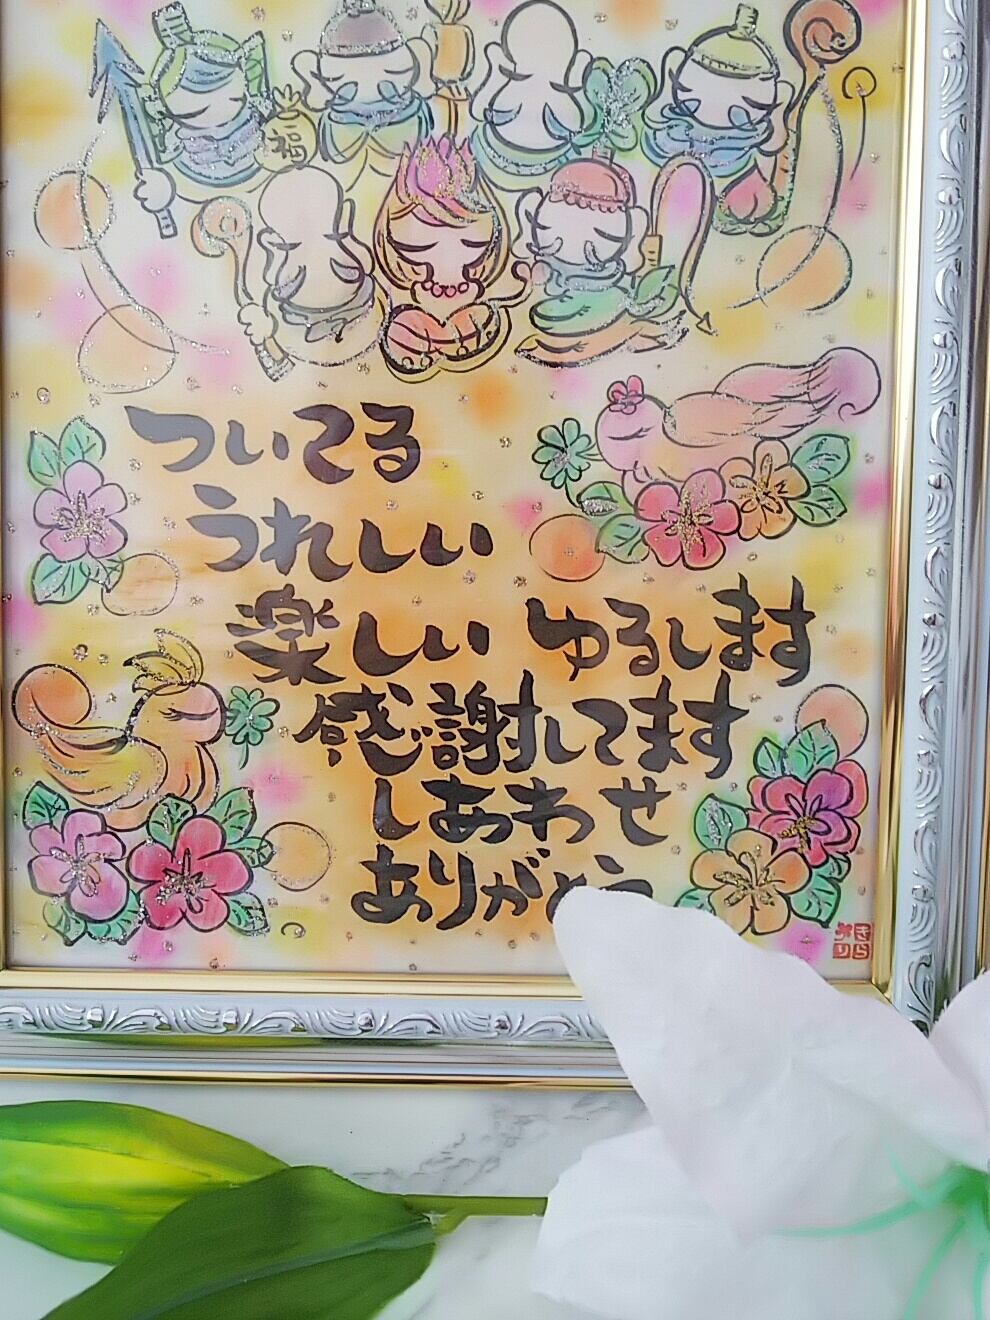 福
ついてる
うれしい
楽しい ゆるします
感謝してます
しあわせ
ありがとう
きら